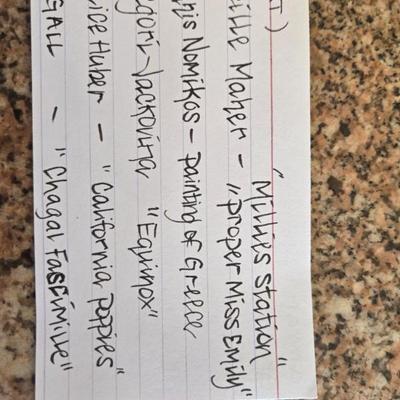 T) "Millies Station"
Maher - "Proper Miss Emily"
Nomikos - painting of Greece
"Equinox"
Huber - "California Poppies"
GALL - "Chagal Fascimile"